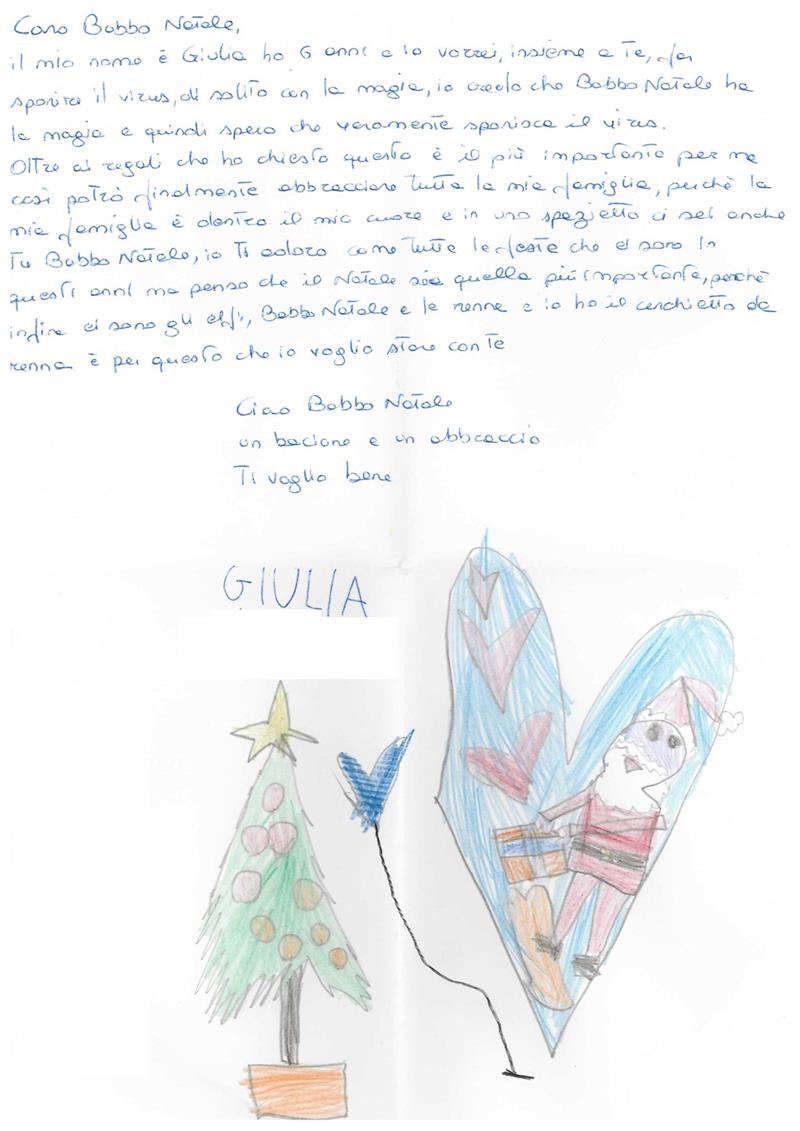 Caro Babbo Natale,
il mio nome è Giulia ho 6 anni e io vorrei, insieme a te, far
sparire il virus, di solito con la magia, io credo che Babbo Natale ha
la magia e quindi spero che veramente sparisca il virus.
Oltre ai regali che ho chiesto questo è il più importante per me
così potrò finalmente abbracciare tutta la mia famiglia, perchè la
mia famiglia è dentro il mio cuore e in uno spezietto ci sei anche
Tu Babbo Natale, io Ti adoro come tutte le feste che ci sono in
questi anni ma penso che il Natale sia quella più importante, perchè
infine ci sono gli elfi, Babbo Natale e le renne e io ho il cerchietto da
renna è per questo che io voglio stare con te
Ciao Babbo Natale
un bacione e un abbraccio
Ti voglio bene
GIULIA